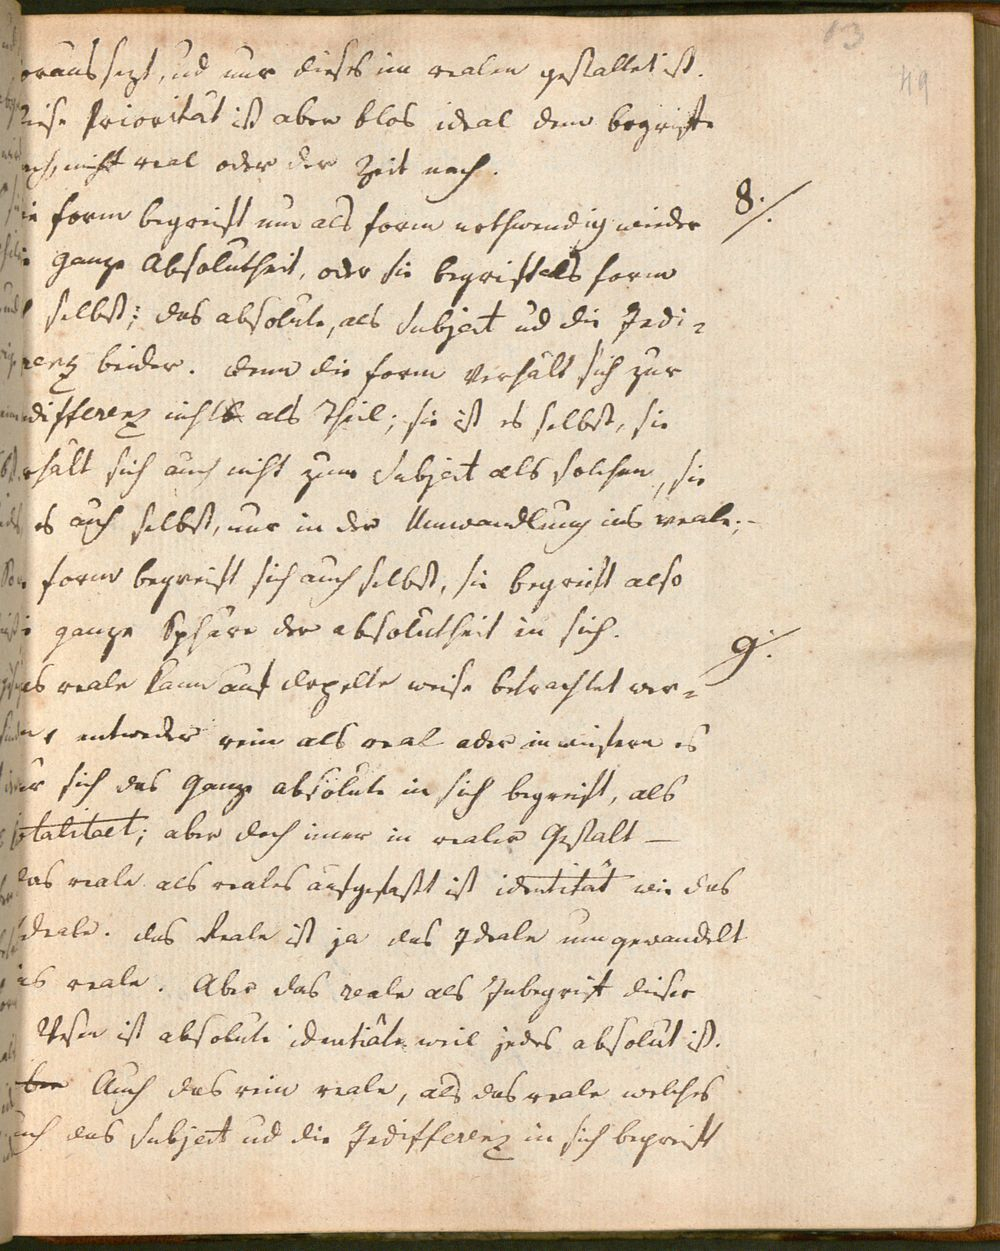 13
49
oraussezt, ud nur dieses im realen gestaltet ist.
iese Priorität ist aber blos ideal dem begriffe
ach, nicht real oder der Zeit nach.
8.
ie form begreift nun als form nothwendig wieder
ie ganze Absolutheit, oder sie begreift als form
selbst; das absolute, als Subject ud die Indi=
renz beider. denn die form verhält sich zur
ndifferenz nicht als Theil; sie ist es selbst, sie
rhält sich auch nicht zum Subject als solchen, sie
es auch selbst, nur in der Umwandlung ins reale; –
form begreift sich auch selbst, sie begreift also
ie ganze Sphäre der absolutheit in sich.
9.
as reale kann auf dopelte weise betrachtet wer=
n, entweder rein als real oder in wiefern es
ur sich das Ganze absolute in sich begreift, als
otalitaet; aber doch imer in realer Gestalt —
das reale als reales aufgefaßt ist identität wie das
deale. das Reale ist ja das Ideale umgewandelt
ins reale. Aber das reale als Inbegriff dieser
ist absolute identität weil jedes absolut ist.
Auch das rein reale, als das reale welches
uch das Subject ud die Indifferenz in sich begreift